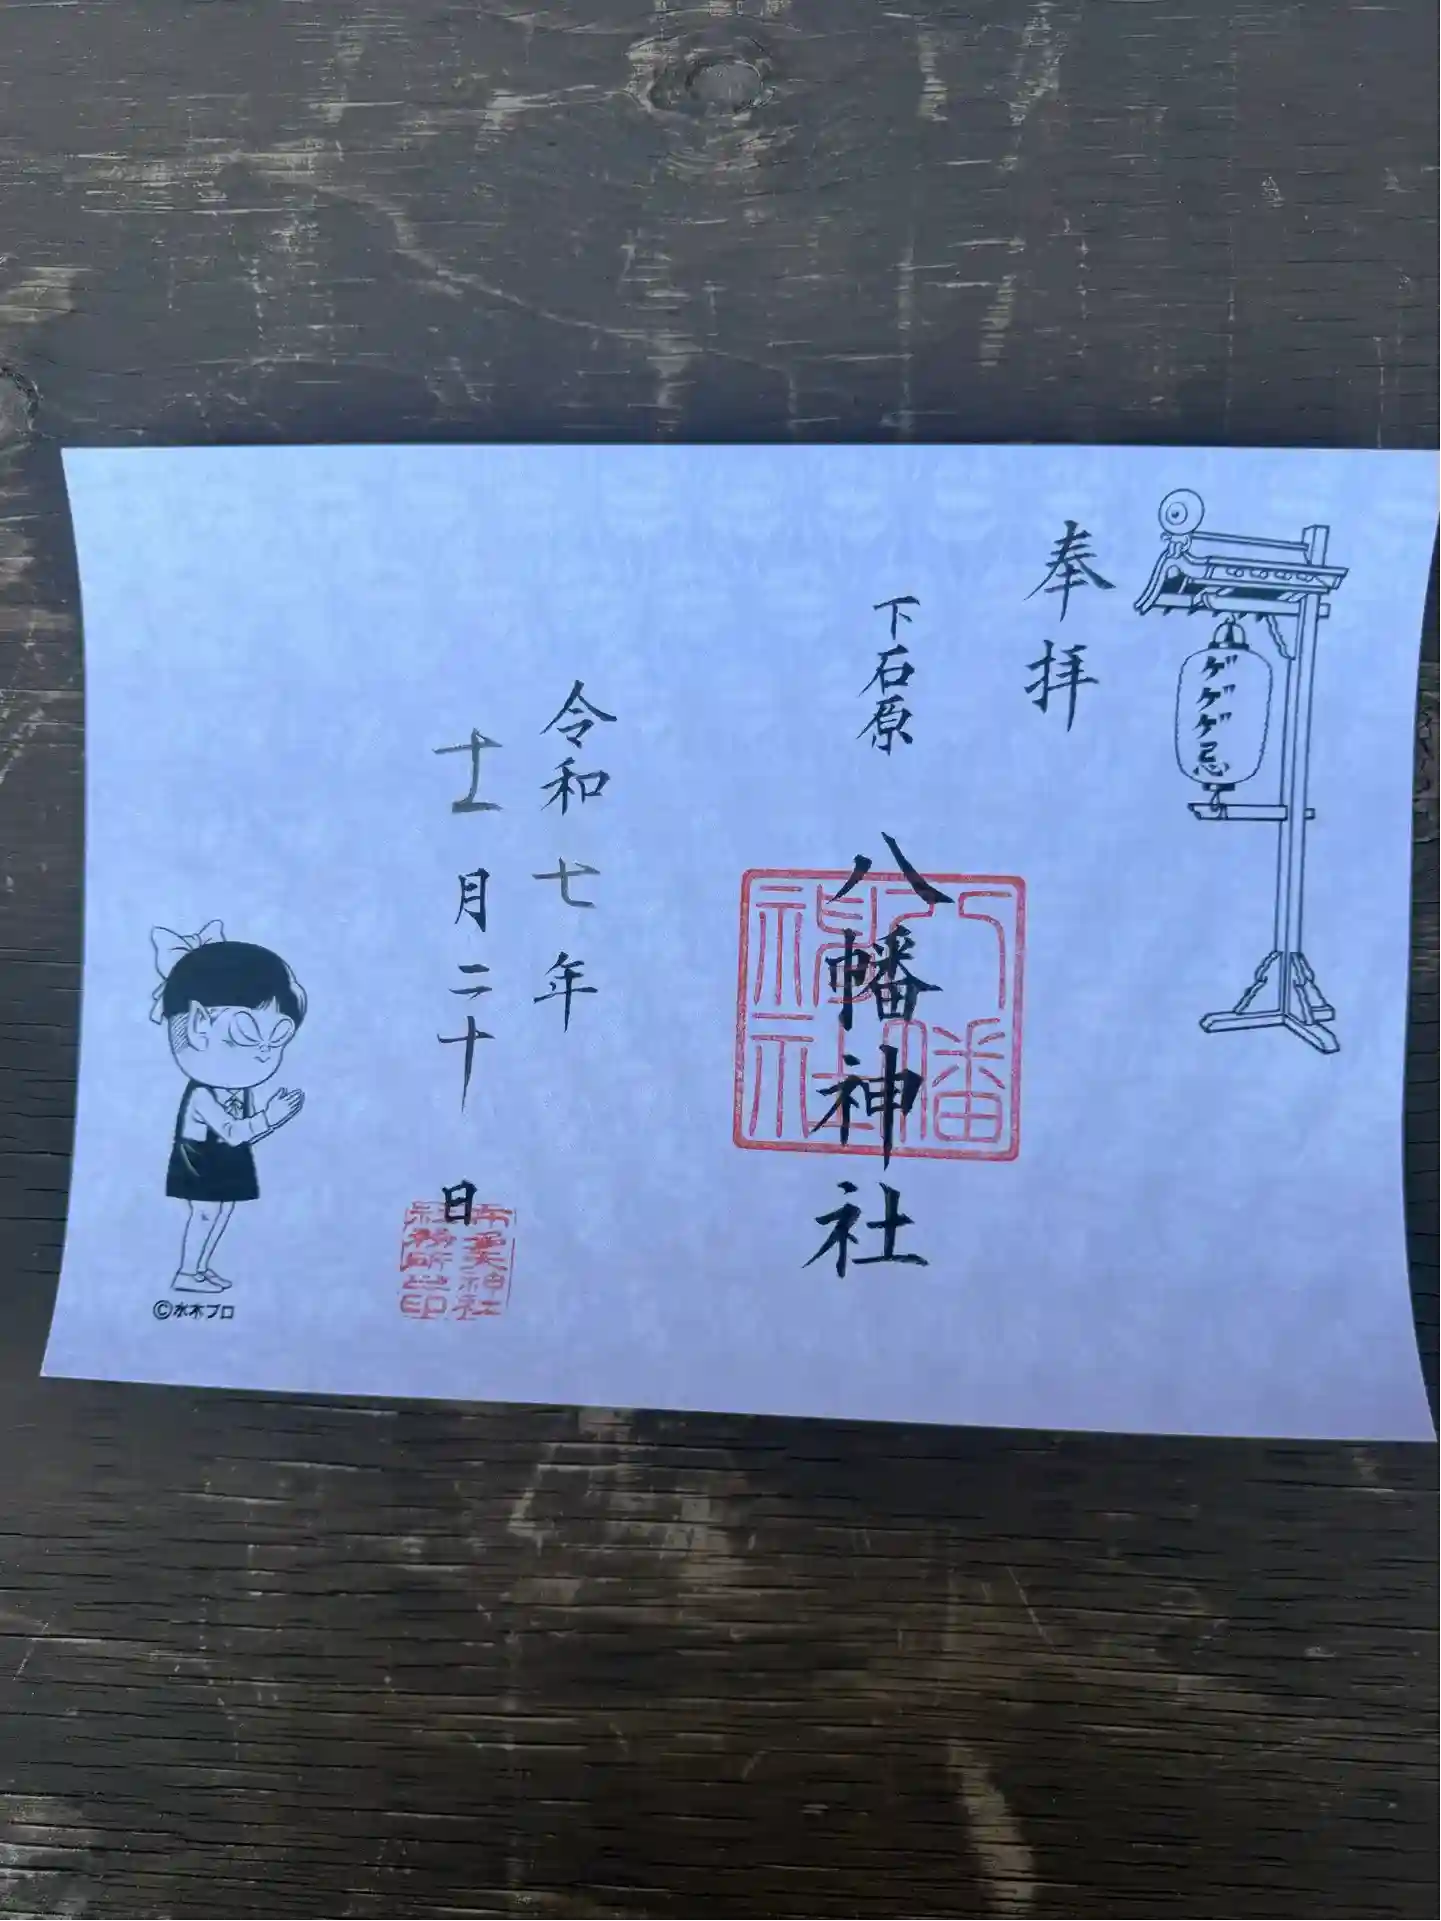 ゲゲゲ忌
奉拝
下石原
八幡神社
八幡神社
令和七年
十一月二十日
布多天神社
社務所之印
©水木プロ